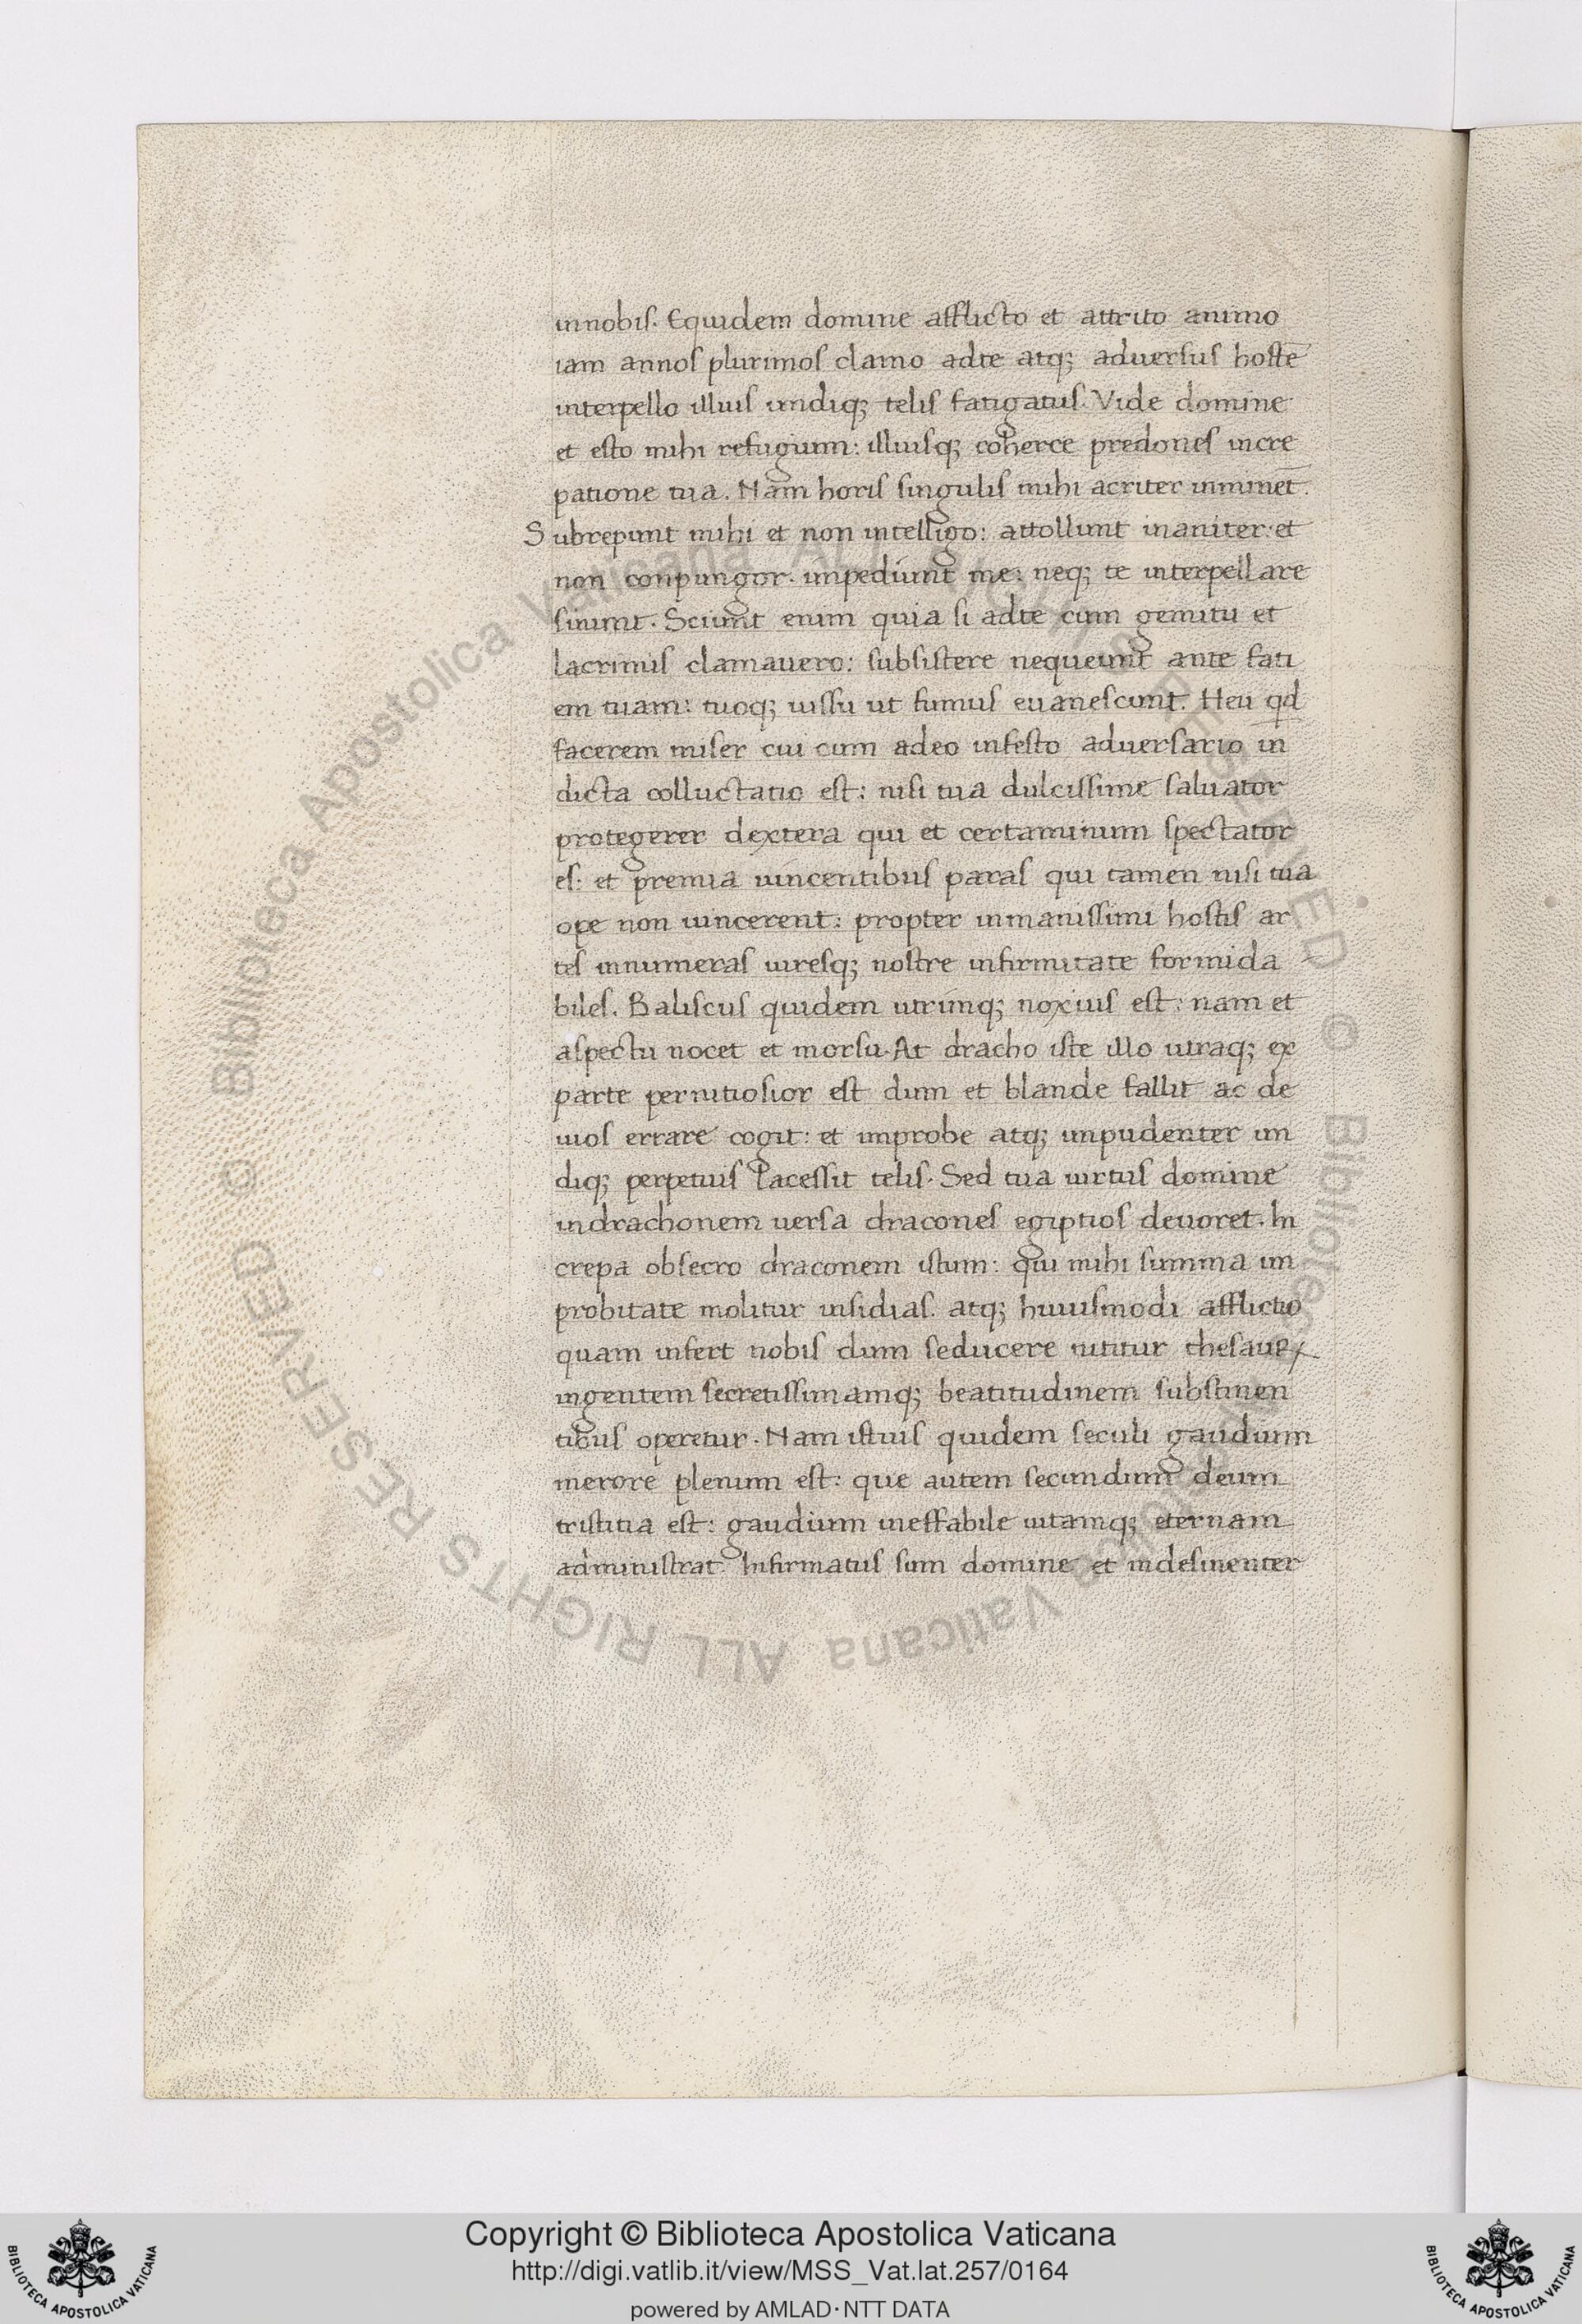 innobis. Equidem domine afflicto et attrito animo
iam annos plurimos clamo adte atq; aduersus hostē
interpello illius undiq; telis fatigatus. Vide domine
et esto mihi refugium: illiusq; coherce predones incre
patione tua. Nam horis singulis mihi acriter inminēt.
Subrepunt mihi et non intelligo: attollunt inaniter: et
non conpungor. impediunt me: neq; te interpellare
sinunt. Sciunt enim quia si adte cum gemitu et
lacrimis clamauero: subsistere nequeunt ante fati
em tuam: tuoq; iussu ut fumus euanescunt. Heu qd
facerem miser cui cum adeo infesto aduersario in
dicta colluctatio est: nisi tua dulcissime saluator
protegerer dextera qui et certaminum spectator
es: et premia uincentibus paras qui tamen nisi tua
ope non uincerent: propter inmanissimi hostis ar
tes innumeras uiresq; nostre infirmitate formida
biles. Baliscus quidem utrimq; noxius est: nam et
aspectu nocet et morsu. At dracho iste illo utraq; ex
parte pernitiosior est dum et blande fallit ac de
uios errare cogit: et improbe atq; impudenter un
diq; perpetuis lacessit telis. Sed tua uirtus domine
indrachonem uersa dracones egiptios deuoret. In
crepa obsecro draconem istum: qui mihi summa im
probitate molitur insidias. atq; huiusmodi afflictio
quam infert nobis dum seducere nititur thesauꝝ
ingentem secretissimamq; beatitudinem substinen
tibus operetur. Nam istius quidem seculi gaudium
merore plenum est: que autem secundum deum
tristitia est: gaudium ineffabile uitamq; eternam
administrat. Infirmatus sum domine et indesinenter
Copyright © Biblioteca Apostolica Vaticana
http://digi.vatlib.it/view/MSS_Vat.lat.257/0164
powered by AMLAD·NTT DATA
BIBLIOTECA APOSTOLICA VATICANA
BIBLIOTECA APOSTOLICA VATICANA
© Biblioteca Apostolica Vaticana ALL RIGHTS RESERVED
© Biblioteca Apostolica Vaticana ALL RIGHTS RESERVED